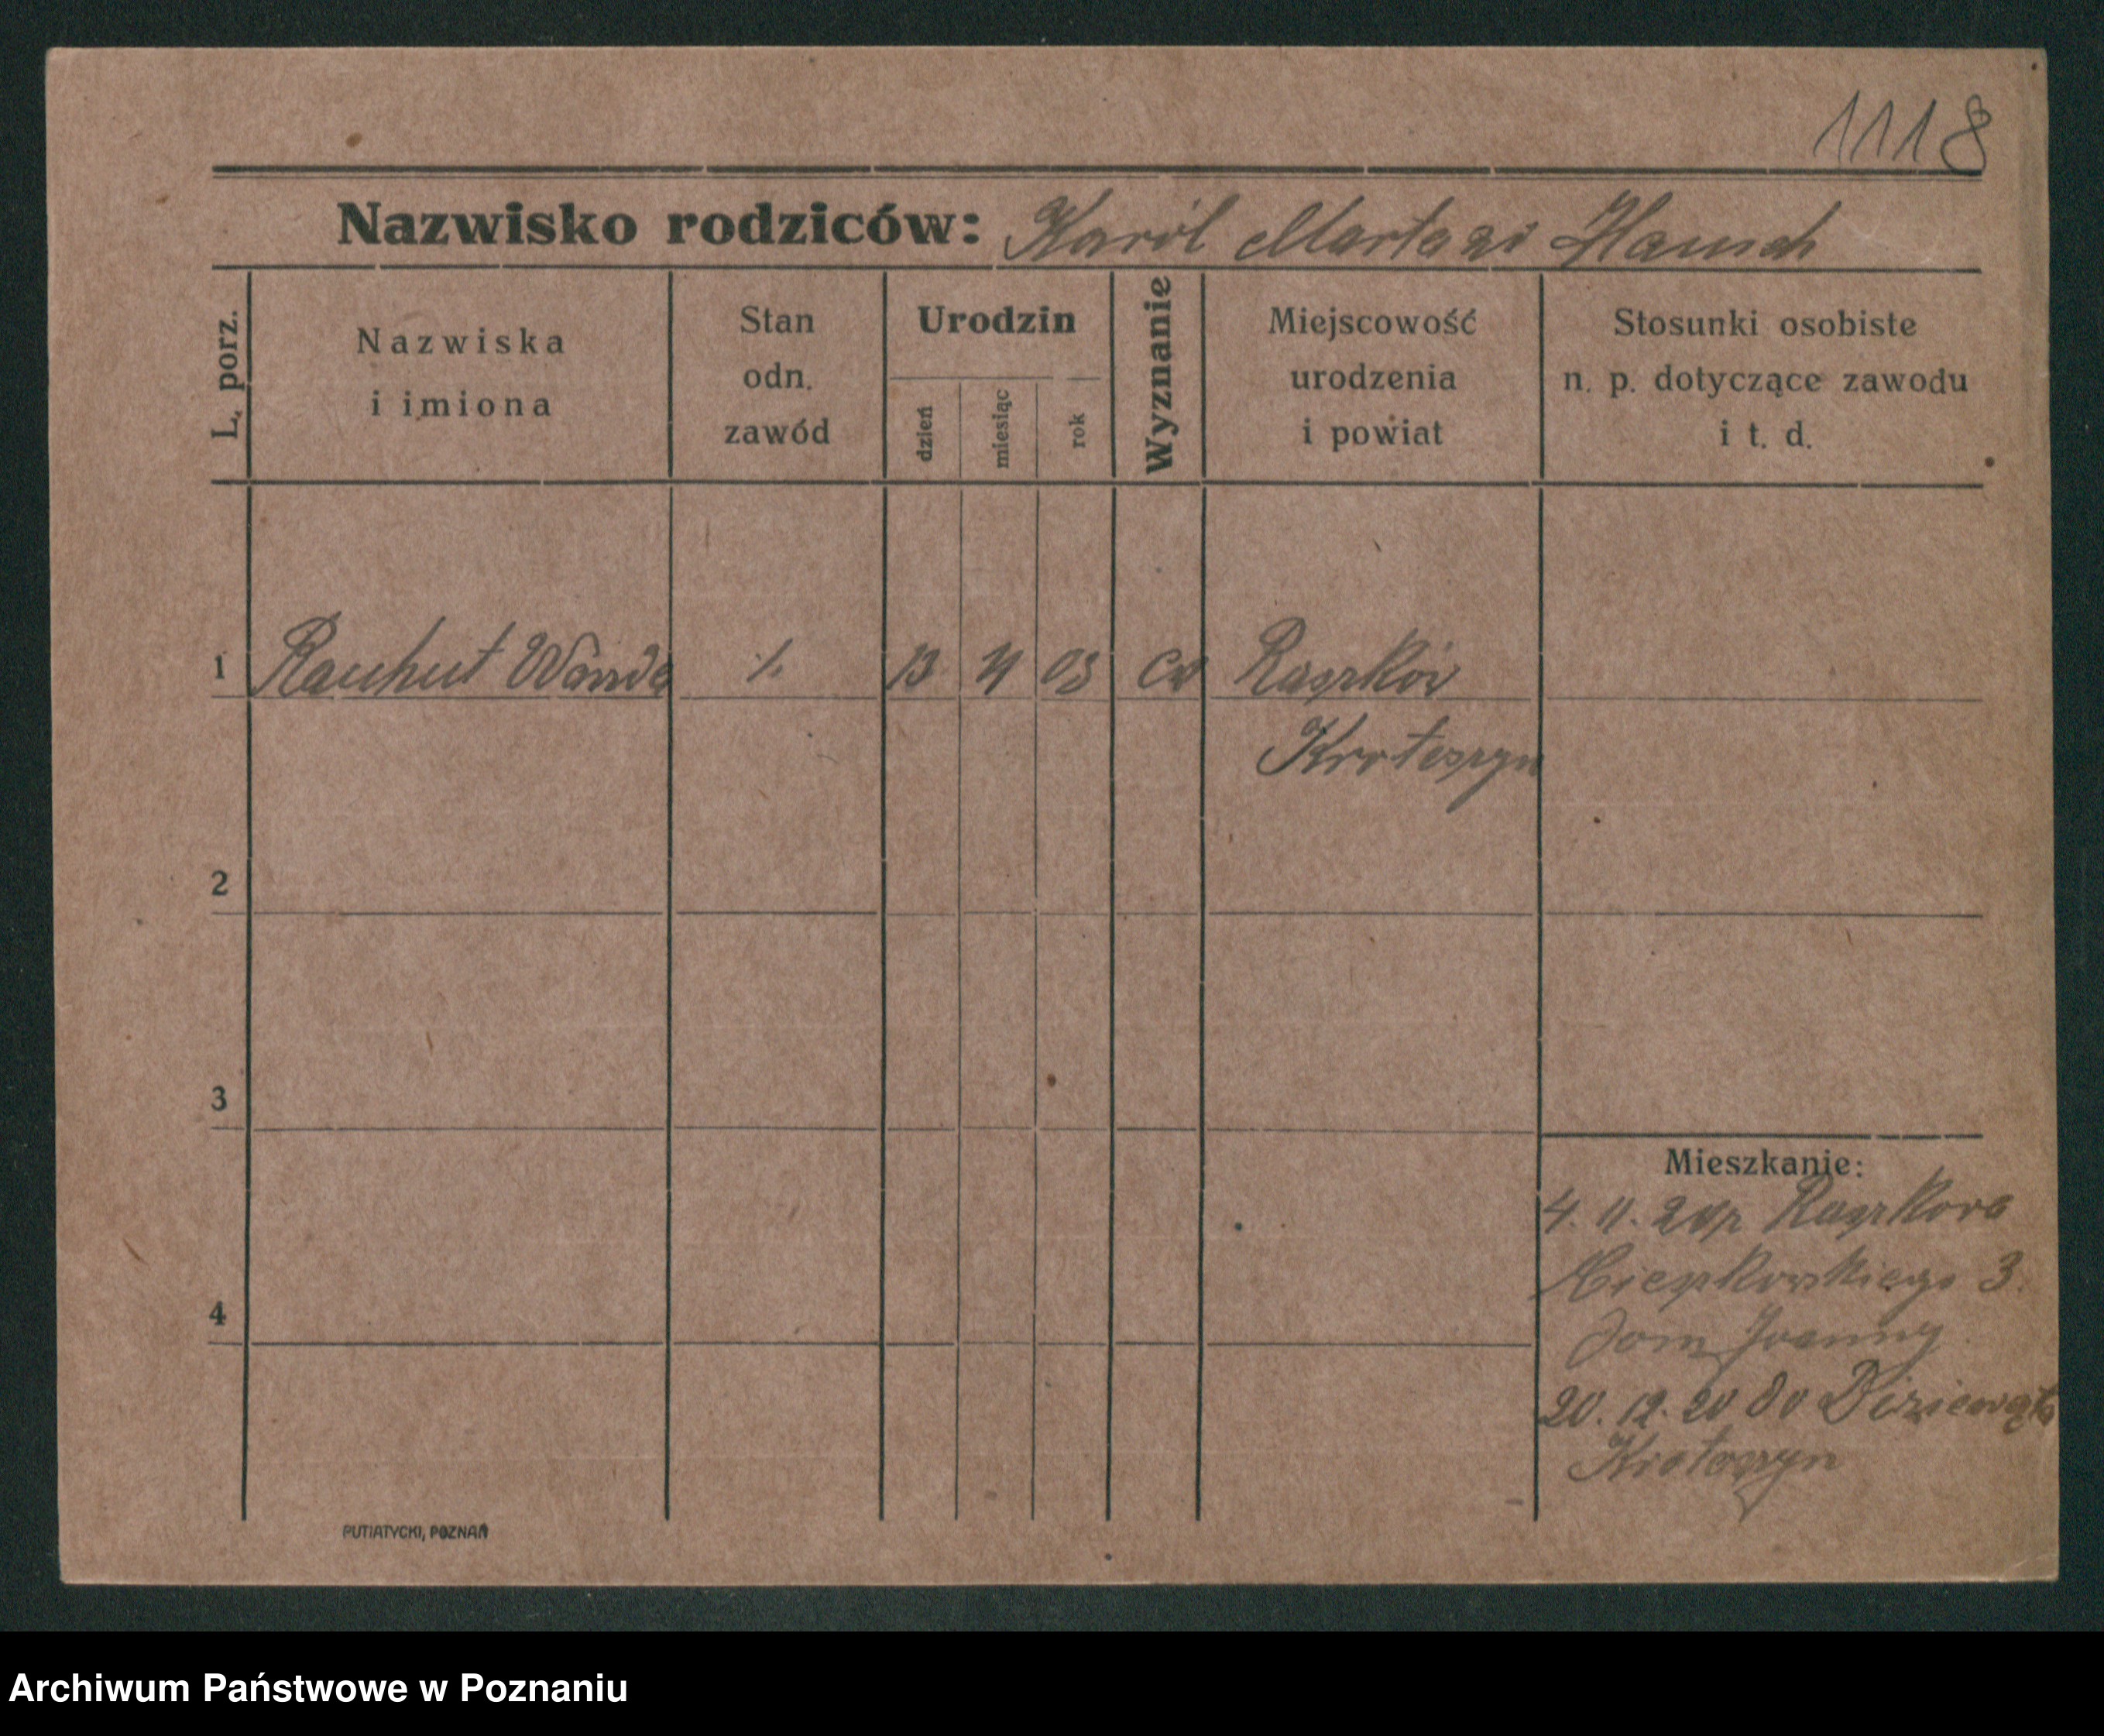 1118
Nazwisko rodziców: Karól Marta zd Hansch
L. porz.
Nazwiska
i imiona
Stan
odn.
zawód
Urodzin
dzień
miesiąc
rok
Wyznanie
Miejscowość
urodzenia
i powiat
Stosunki osobiste
n. p. dotyczące zawodu
i t. d.
1 Rauhut Wanda ./. 13 4 03 ew Raszków
Krotoszyn
2
3
4
Mieszkanie:
4. 11. 20 Raszkowa
3.
Joanny
20. 12. 20 do
Krotoszyn
PUTIATYCKI, POZNAŃ
Archiwum Państwowe w Poznaniu